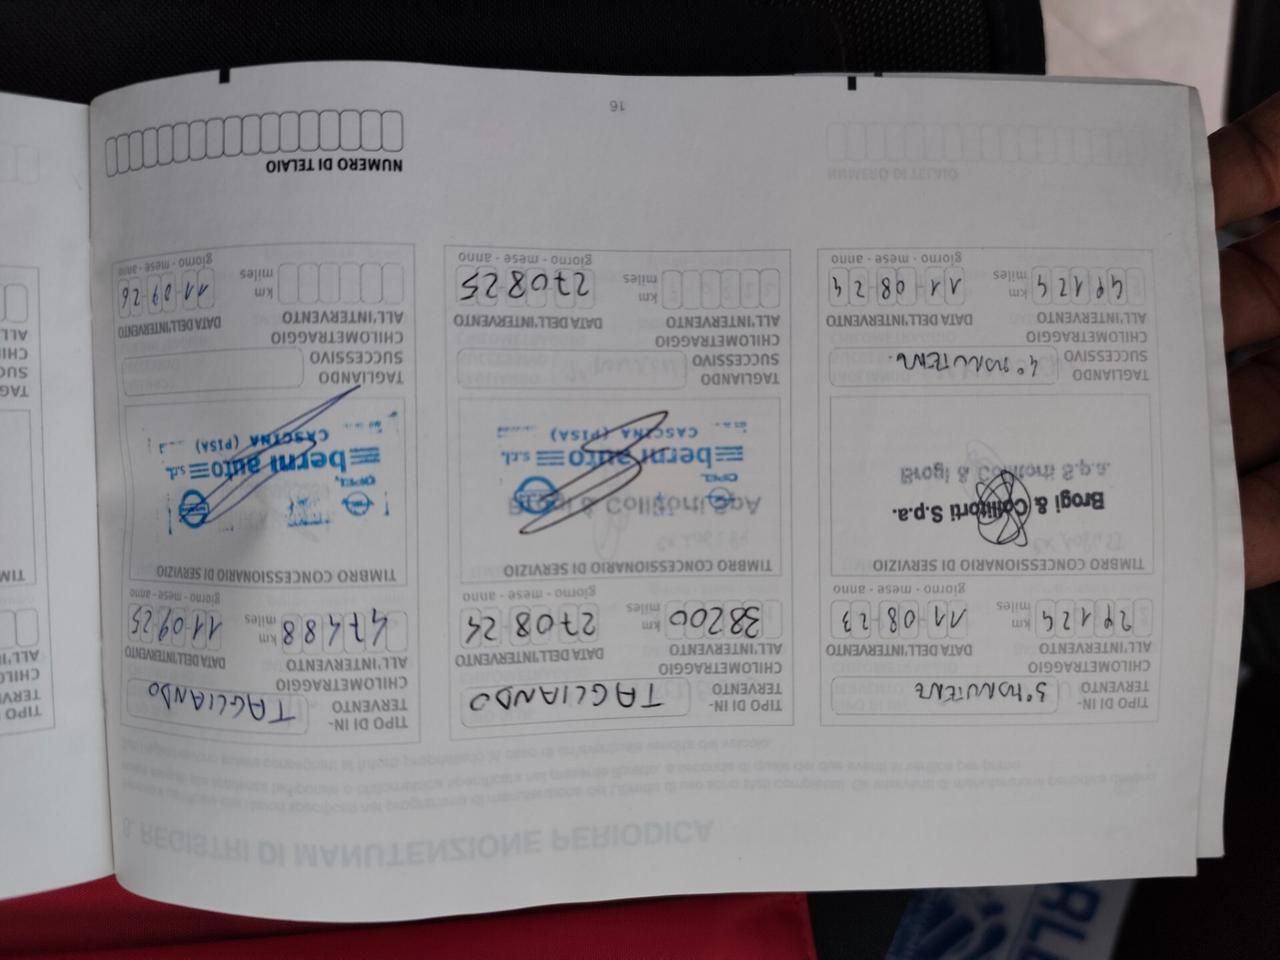 TIPO DI IN-
TERVENTO
3° MANUTENZ
CHILOMETRAGGIO
ALL'INTERVENTO
DATA DELL'INTERVENTO
29124
km
miles
11 08 23
giorno - mese - anno
TIMBRO CONCESSIONARIO DI SERVIZIO
Brogi & Collitorti S.p.a.
Brogi & Collitorti S.p.a.
TAGLIANDO
SUCCESSIVO
4° MANUTENZ.
CHILOMETRAGGIO
ALL'INTERVENTO
DATA DELL'INTERVENTO
49124
km
miles
11 08 24
giorno - mese - anno
TIPO DI IN-
TERVENTO
TAGLIANDO
CHILOMETRAGGIO
ALL'INTERVENTO
DATA DELL'INTERVENTO
38200
km
miles
27 08 24
giorno - mese - anno
TIMBRO CONCESSIONARIO DI SERVIZIO
Brogi & Collitorti SpA
OPEL
berni auto s.r.l.
CASCINA (PISA)
TAGLIANDO
SUCCESSIVO
CHILOMETRAGGIO
ALL'INTERVENTO
DATA DELL'INTERVENTO
km
miles
27 08 25
giorno - mese - anno
TIPO DI IN-
TERVENTO
TAGLIANDO
CHILOMETRAGGIO
ALL'INTERVENTO
DATA DELL'INTERVENTO
47488
km
miles
11 09 25
giorno - mese - anno
TIMBRO CONCESSIONARIO DI SERVIZIO
OPEL
berni auto s.r.l.
CASCINA (PISA)
TAGLIANDO
SUCCESSIVO
CHILOMETRAGGIO
ALL'INTERVENTO
DATA DELL'INTERVENTO
km
miles
11 09 26
giorno - mese - anno
NUMERO DI TELAIO
16
8. REGISTRI DI MANUTENZIONE PERIODICA
NUMERO DI TELAIO